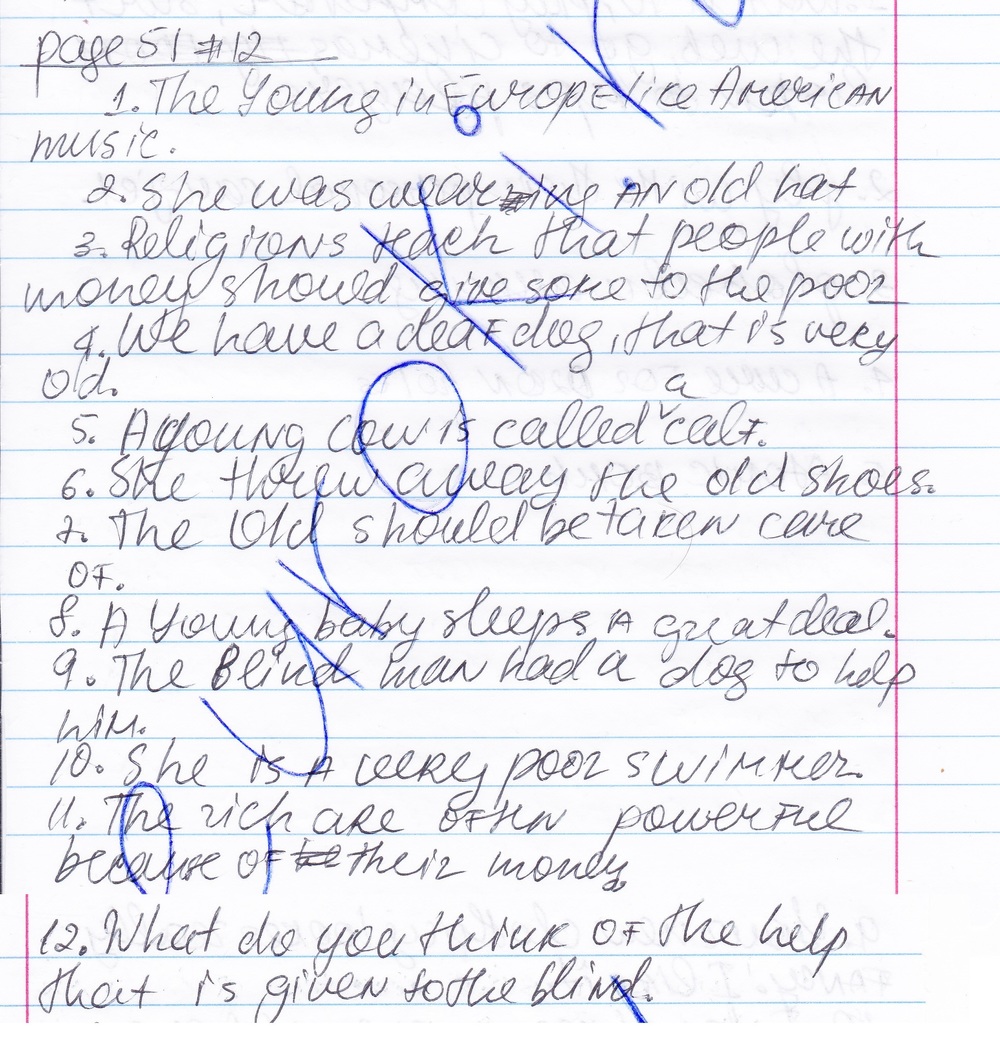 page 51 #12
1. The Young in Europe like American
music.
2. She was wearing an old hat
3. Religions teach that people with
money should give some to the poor
4. We have a deaf dog, that is very
old.
5. A young cow is called a calf.
6. She threw away the old shoes.
7. The Old should be taken care
of.
8. A Young baby sleeps a great deal.
9. The Blind man had a dog to help
him.
10. She is a very poor swimmer.
11. The rich are often powerful
because of their money.
12. What do you think of the help
that is given to the blind.